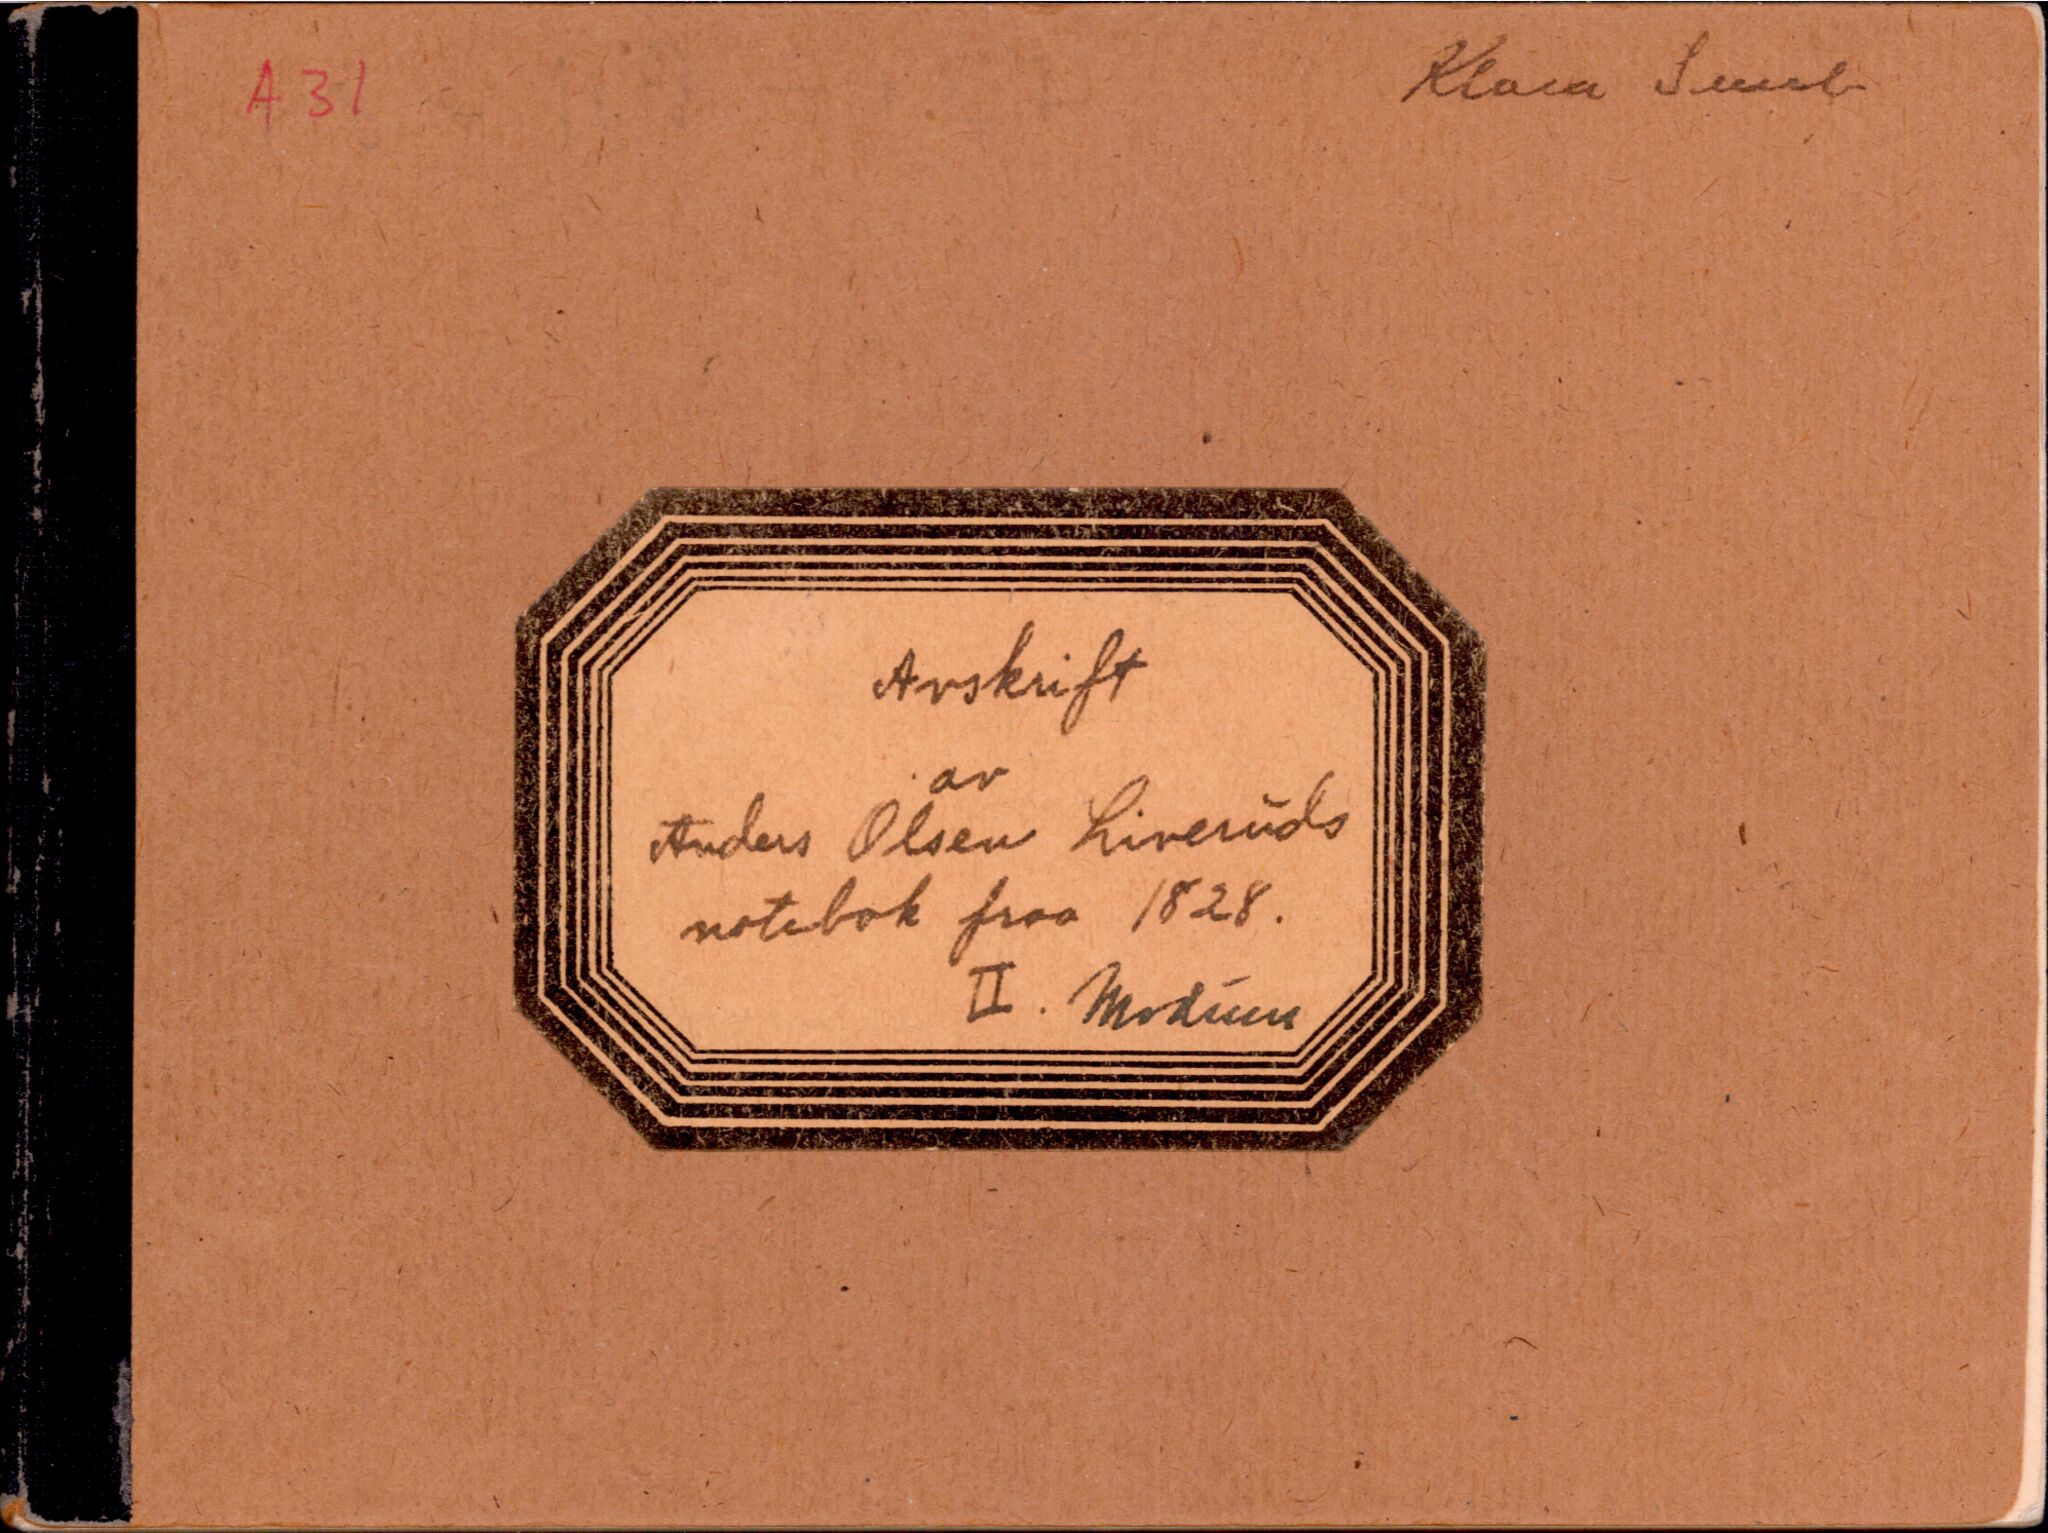 A 31
Klara Semb
Avskrift
av
Anders Olsen Liverŭds
notebok fraa 1828.
II. Modŭm